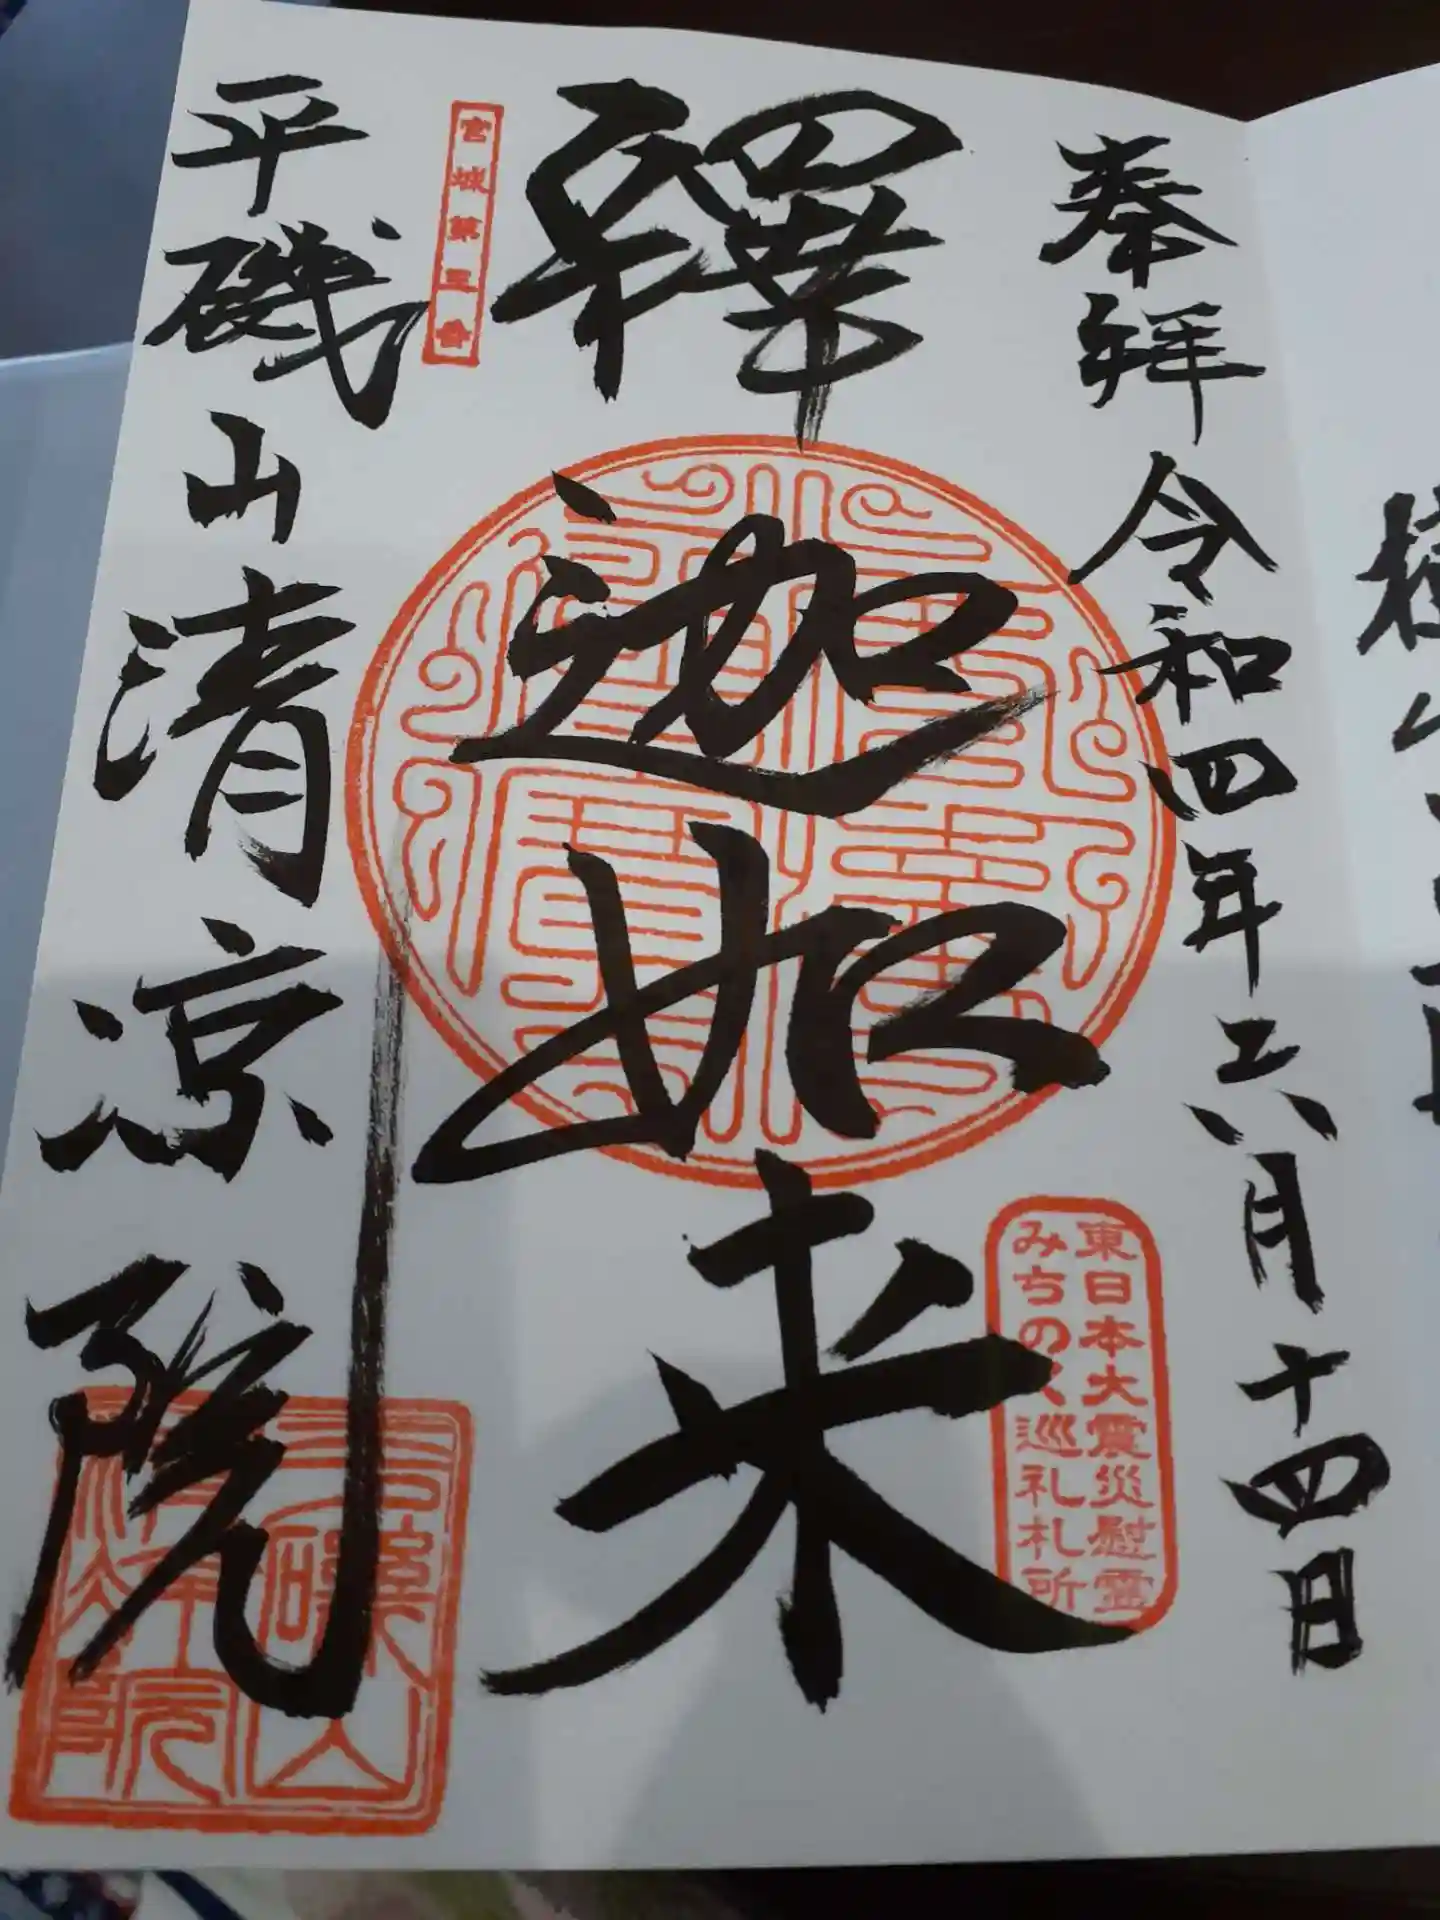 奉拝 令和四年六月十四日
釋迦如来
東日本大震災慰霊
みちのく巡礼札所
宮城第三番
平磯山清凉院